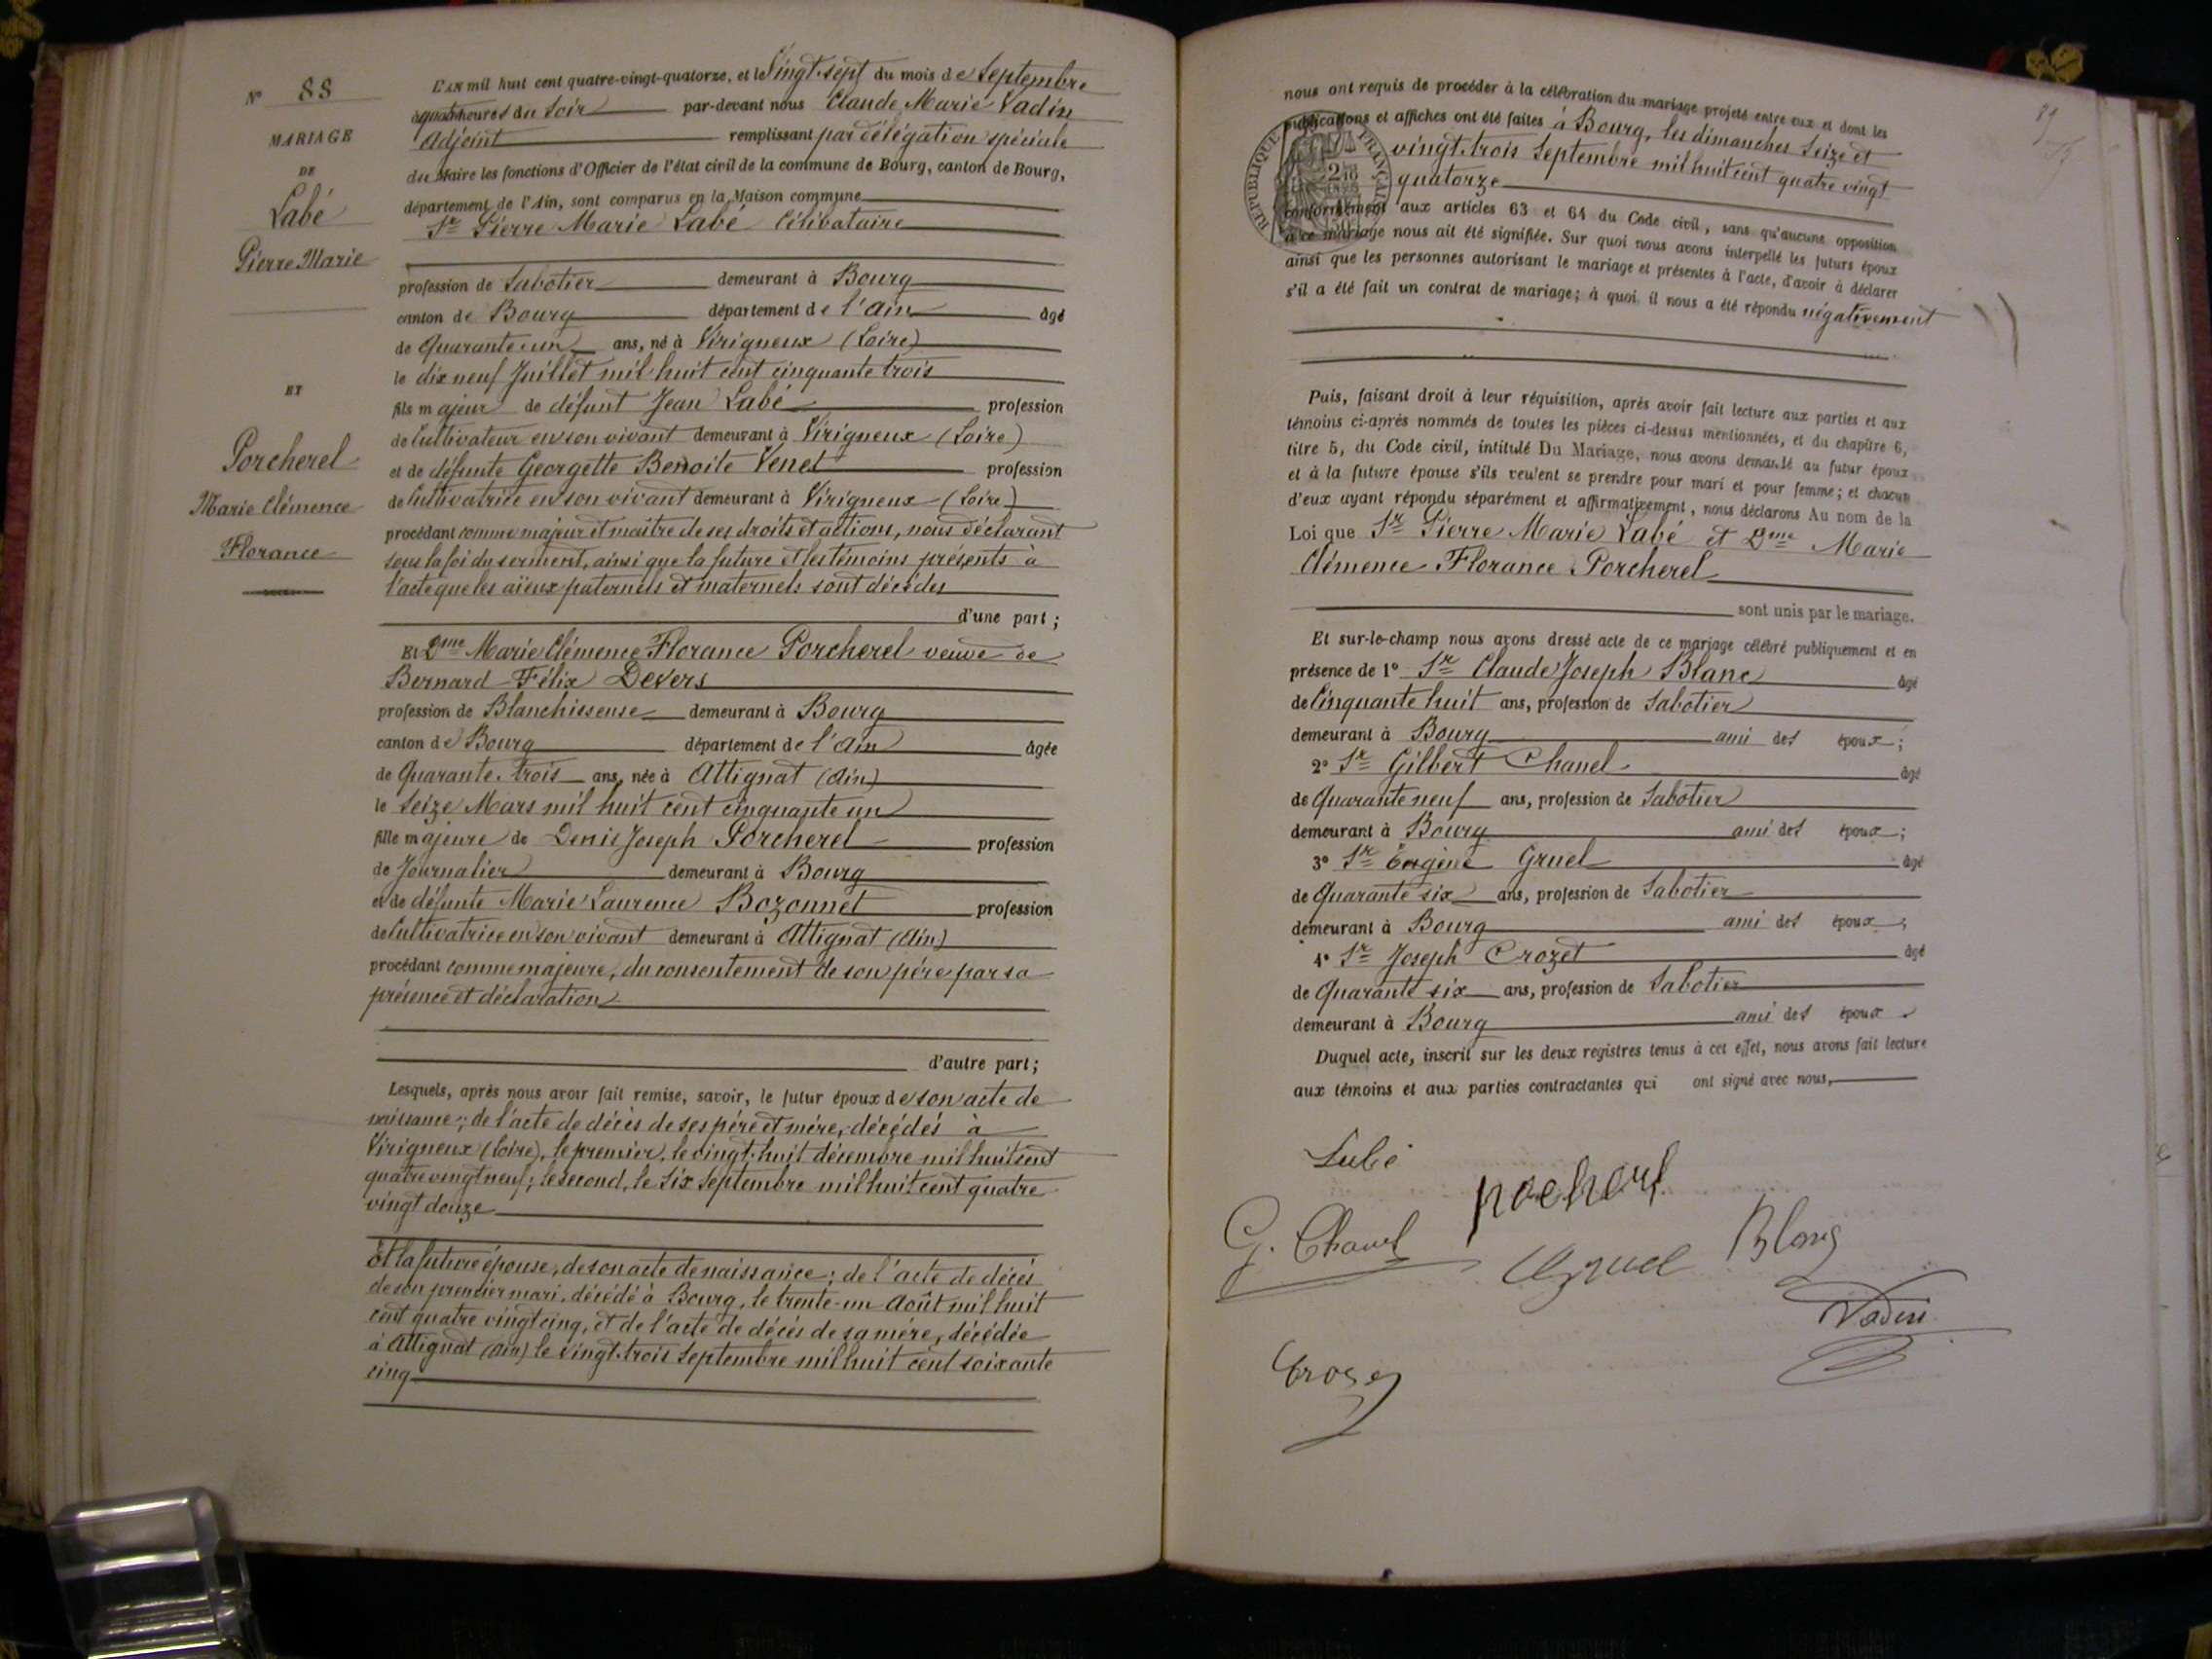 N° 88
MARIAGE
DE
Labé
Pierre Marie
ET
Porcherel
Marie Clémence
Florance
L'AN mil huit cent quatre-vingt-quatorze, et le Vingt-sept du mois de Septembre
à quatre heures du Soir par-devant nous Claude Marie Vadin
Adjoint remplissant par délégation spéciale
du Maire les fonctions d'Officier de l'état civil de la commune de Bourg, canton de Bourg,
département de l'Ain, sont comparus en la Maison commune
Sr Pierre Marie Labé Célibataire
profession de Sabotier demeurant à Bourg
canton de Bourg département de l'Ain âgé
de Quarante-un ans, né à Virigneux (Loire)
le dix neuf Juillet mil huit cent cinquante trois
fils majeur de défunt Jean Labé profession
de Cultivateur en son vivant demeurant à Virigneux (Loire)
et de défunte Georgette Benoite Venet profession
de Cultivatrice en son vivant demeurant à Virigneux (Loire)
procédant comme majeur et maître de ses droits et actions, nous déclarant
sous la foi du serment, ainsi que la future et les témoins présents à
l'acte que les aïeux paternels et maternels sont décédés
d'une part;
Et Dme Marie Clémence Florance Porcherel veuve de
Bernard Félix Devers
profession de Blanchisseuse demeurant à Bourg
canton de Bourg département de l'Ain âgée
de Quarante-trois ans, née à Attignat (Ain)
le Seize Mars mil huit cent cinquante un
fille majeure de Denis Joseph Porcherel profession
de Journalier demeurant à Bourg
et de défunte Marie Laurence Bozonnet profession
de Cultivatrice en son vivant demeurant à Attignat (Ain)
procédant comme majeure, du consentement de son père par sa
présence et déclaration
d'autre part;
Lesquels, après nous avoir fait remise, savoir, le futur époux de son acte de
naissance; de l'acte de décès de ses père et mère, décédés à
Virigneux (Loire), le premier, le vingt-huit décembre mil huit cent
quatre vingt neuf; le second, le Six Septembre mil huit cent quatre
vingt douze
Et la future épouse, de son acte de naissance; de l'acte de décès
de son premier mari, décédé à Bourg, le trente-un Août mil huit
cent quatre vingt cinq, et de l'acte de décès de sa mère, décédée
à Attignat (Ain) le Vingt-trois Septembre mil huit cent soixante
cinq
nous ont requis de procéder à la célébration du mariage projeté entre eux et dont les
publications et affiches ont été faites à Bourg, les dimanches Seize et
vingt-trois Septembre mil huit cent quatre vingt
quatorze
RÉPUBLIQUE FRANÇAISE
conformément aux articles 63 et 64 du Code civil, sans qu'aucune opposition
à ce mariage nous ait été signifiée. Sur quoi nous avons interpellé les futurs époux
ainsi que les personnes autorisant le mariage et présentes à l'acte, d'avoir à déclarer
s'il a été fait un contrat de mariage; à quoi il nous a été répondu négativement
Puis, faisant droit à leur réquisition, après avoir fait lecture aux parties et aux
témoins ci-après nommés de toutes les pièces ci-dessus mentionnées, et du chapitre 6,
titre 5, du Code civil, intitulé Du Mariage, nous avons demandé au futur époux
et à la future épouse s'ils veulent se prendre pour mari et pour femme; et chacun
d'eux ayant répondu séparément et affirmativement, nous déclarons Au nom de la
Loi que Sr Pierre Marie Labé et Dme Marie
Clémence Florance Porcherel
sont unis par le mariage.
Et sur-le-champ nous avons dressé acte de ce mariage célébré publiquement et en
présence de 1° Sr Claude Joseph Blanc âgé
de Cinquante huit ans, profession de Sabotier
demeurant à Bourg ami des époux;
2° Sr Gilbert Chanel âgé
de Quarante neuf ans, profession de Sabotier
demeurant à Bourg ami des époux;
3° Sr Eugène Gruel âgé
de Quarante six ans, profession de Sabotier
demeurant à Bourg ami des époux;
4° Sr Joseph Crozet âgé
de Quarante six ans, profession de Sabotier
demeurant à Bourg ami des époux.
Duquel acte, inscrit sur les deux registres tenus à cet effet, nous avons fait lecture
aux témoins et aux parties contractantes qui ont signé avec nous,
G. Chanel
Blanc
Vadin